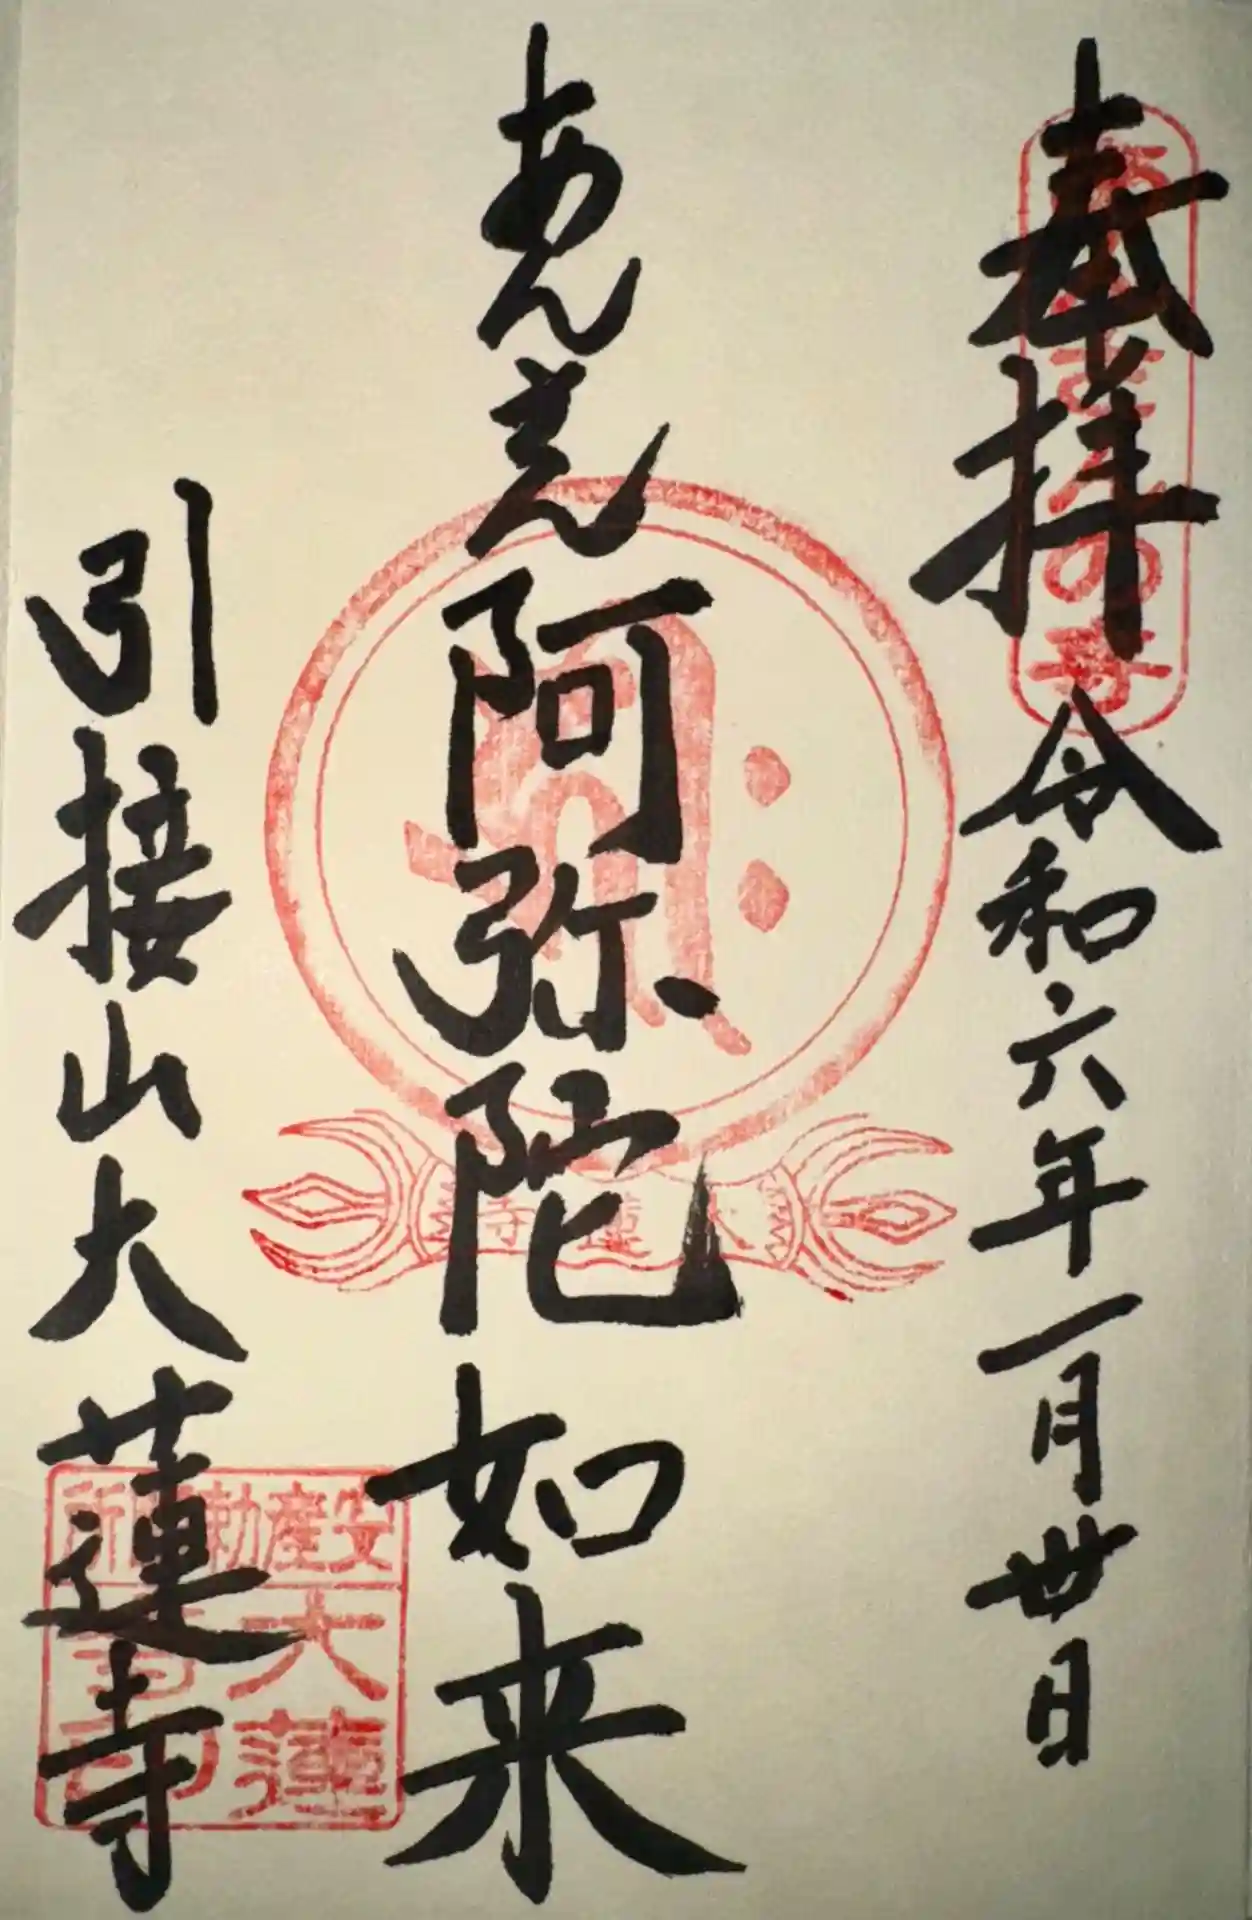 奉拝
令和六年一月廿日
あんざん
阿弥陀如来
引接山大蓮寺
大蓮寺
安産勅願所
大蓮
寺印